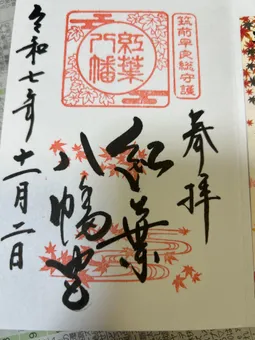 筑前早良総守護
奉拝
紅葉
八幡
紅葉
八幡宮
令和七年十一月二日